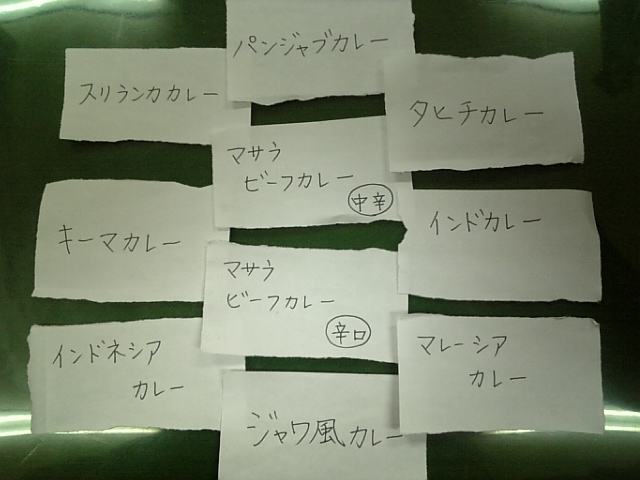 パンジャブカレー
スリランカカレー
タヒチカレー
マサラ
ビーフカレー
中辛
キーマカレー
インドカレー
マサラ
ビーフカレー
辛口
インドネシア
カレー
マレーシア
カレー
ジャワ風カレー